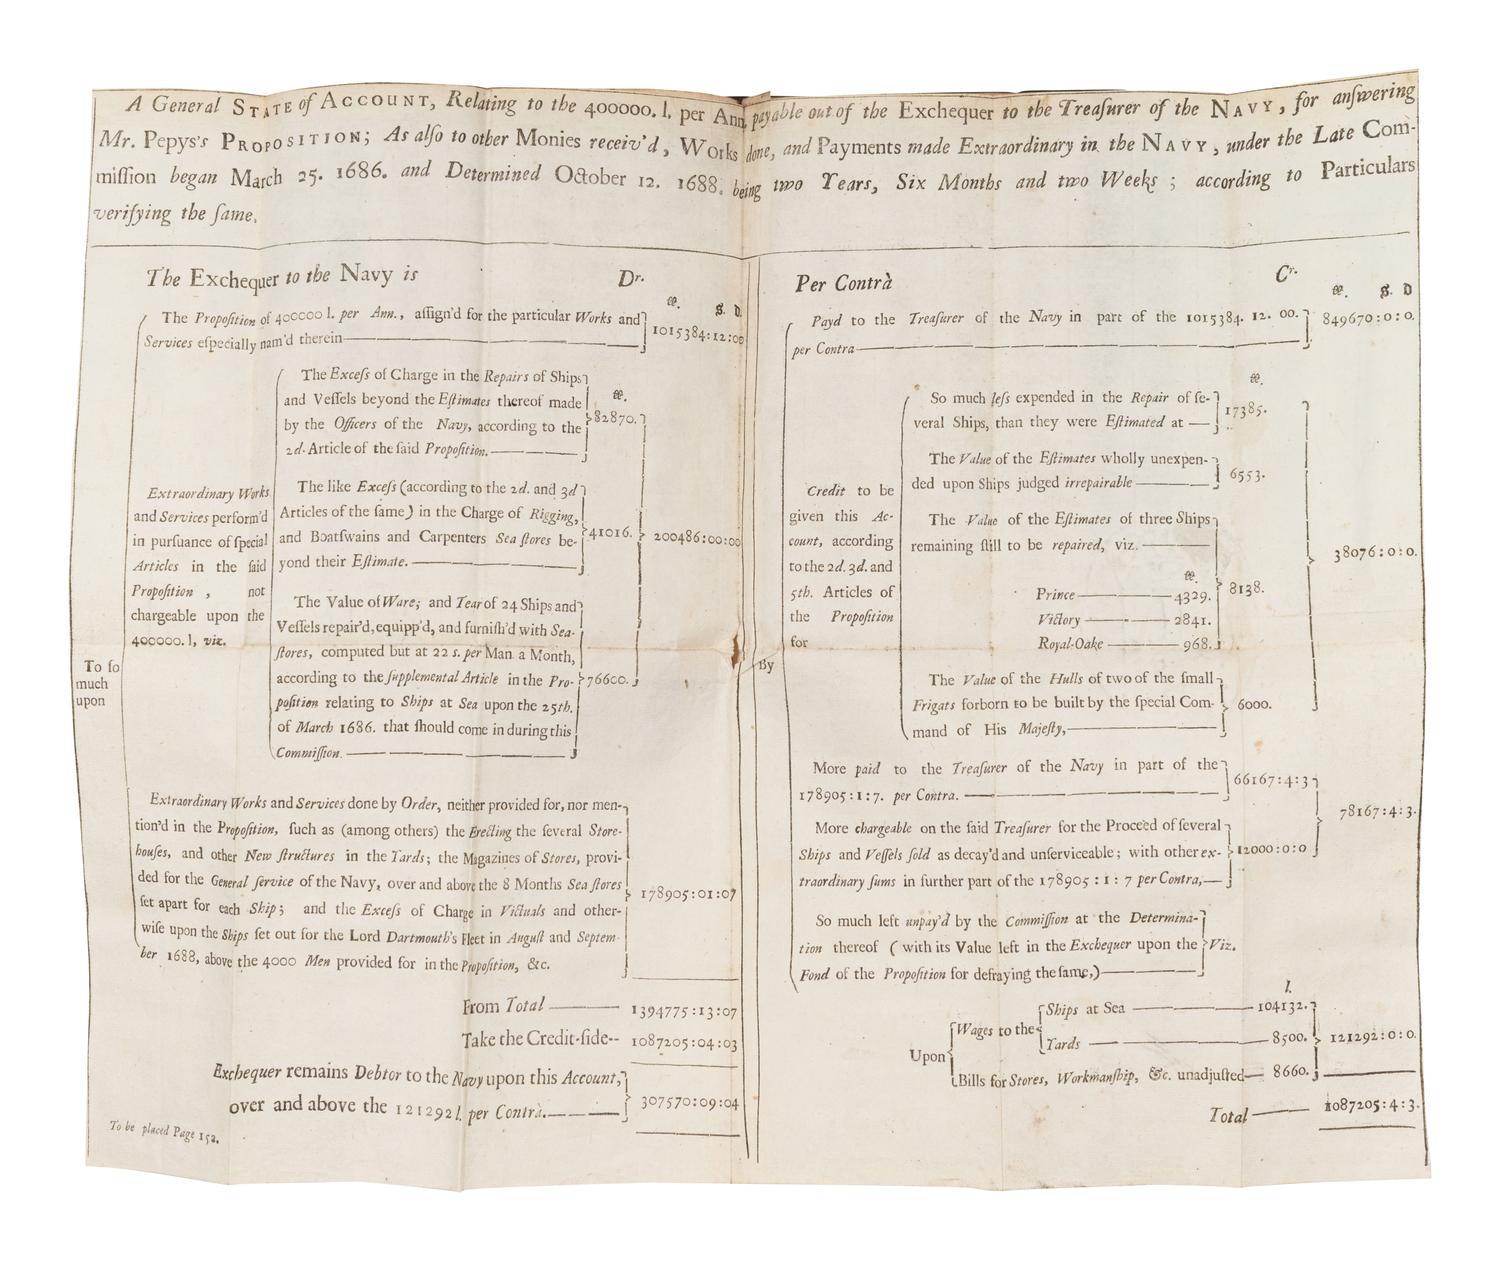 A General STATE of ACCOUNT, Relating to the 400000. l. per Ann. payable out of the Exchequer to the Treaſurer of the NAVY, for anſwering
Mr. Pepys's PROPOSITION; As alſo to other Monies receiv'd, Works done, and Payments made Extraordinary in the NAVY, under the Late Com-
miſſion began March 25. 1686. and Determined October 12. 1688. being two Years, Six Months and two Weeks; according to Particulars
verifying the ſame.
The Exchequer to the Navy is Dr.
æ. S. D.
The Propoſition of 400000 l. per Ann., aſſign'd for the particular Works and
Services eſpecially nam'd therein— 1015384:12:00
To ſo
much
upon
Extraordinary Works
and Services perform'd
in purſuance of ſpecial
Articles in the ſaid
Propoſition, not
chargeable upon the
400000. l, viz.
The Exceſs of Charge in the Repairs of Ships
æ.
and Veſſels beyond the Eſtimates thereof made
by the Officers of the Navy, according to the 82870.
2d. Article of the ſaid Propoſition.—
The like Exceſs (according to the 2d. and 3d
Articles of the ſame) in the Charge of Rigging,
and Boatſwains and Carpenters Sea ſtores be- 41016. 200486:00:00
yond their Eſtimate.—
The Value of Ware; and Tear of 24 Ships and
Veſſels repair'd, equipp'd, and furniſh'd with Sea-
ſtores, computed but at 22 s. per Man a Month,
according to the ſupplemental Article in the Pro- 76600.
poſition relating to Ships at Sea upon the 25th.
of March 1686. that ſhould come in during this
Commiſſion.—
Extraordinary Works and Services done by Order, neither provided for, nor men-
tion'd in the Propoſition, ſuch as (among others) the Erecting the ſeveral Store-
houſes, and other New ſtructures in the Yards; the Magazines of Stores, provi-
ded for the General ſervice of the Navy, over and above the 8 Months Sea ſtores
ſet apart for each Ship; and the Exceſs of Charge in Victuals and other- 178905:01:07
wiſe upon the Ships ſet out for the Lord Dartmouth's Fleet in Auguſt and Septem-
ber 1688, above the 4000 Men provided for in the Propoſition, &c.
From Total — 1394775:13:07
Take the Credit-ſide-- 1087205:04:03
Exchequer remains Debtor to the Navy upon this Account,
over and above the 121292 l. per Contra.— 307570:09:04
To be placed Page 152.
Per Contrà Cr.
æ. S. D
By
Payd to the Treaſurer of the Navy in part of the 1015384. 12. 00. 849670:0:0.
per Contra—
Credit to be
given this Ac-
count, according
to the 2d. 3d. and
5th. Articles of
the Propoſition
for
æ.
So much leſs expended in the Repair of ſe-
veral Ships, than they were Eſtimated at — 17385.
The Value of the Eſtimates wholly unexpen-
ded upon Ships judged irrepairable — 6553.
The Value of the Eſtimates of three Ships
remaining ſtill to be repaired, viz. — 38076:0:0.
æ.
Prince — 4329. 8138.
Victory — 2841.
Royal-Oake — 968.
The Value of the Hulls of two of the ſmall
Frigats forborn to be built by the ſpecial Com- 6000.
mand of His Majeſty,—
More paid to the Treaſurer of the Navy in part of the
178905:1:7. per Contra. — 66167:4:3
More chargeable on the ſaid Treaſurer for the Proceed of ſeveral 78167:4:3.
Ships and Veſſels ſold as decay'd and unſerviceable; with other ex- 12000:0:0
traordinary ſums in further part of the 178905:1:7 per Contra,—
So much left unpay'd by the Commiſſion at the Determina-
tion thereof (with its Value left in the Exchequer upon the Viz.
Fond of the Propoſition for defraying the ſame,)—
l.
Upon Wages to the Ships at Sea — 104132.
Yards — 8500. 121292:0:0.
Bills for Stores, Workmanſhip, &c. unadjuſted— 8660.
Total — 1087205:4:3.